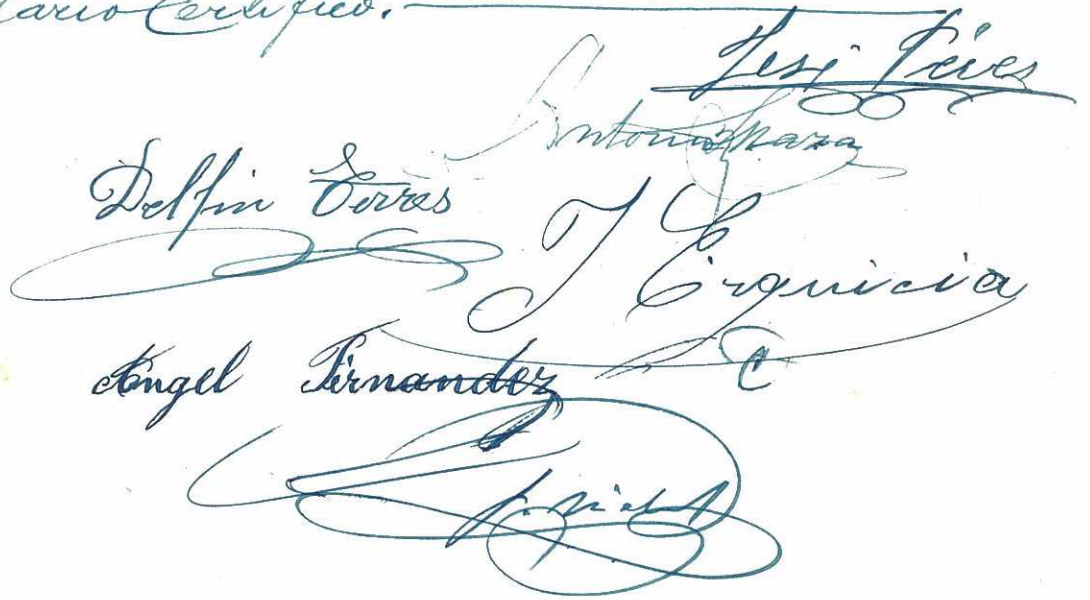 ario Certifico.
Jesi Péres
Antonio Maza
Delfin Torres
J Erquicia
C
Angel Fernandez